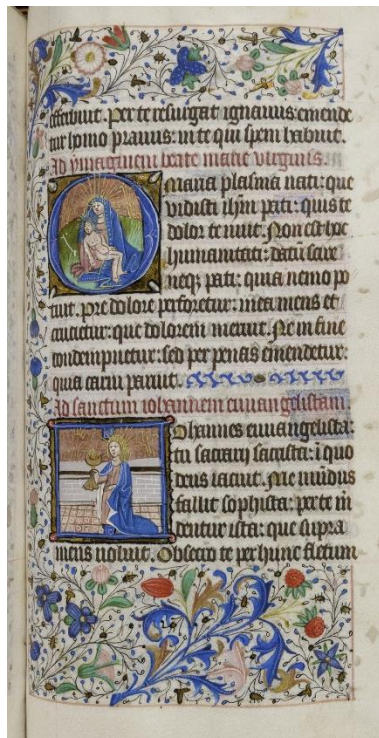 creavit. Per te resurgat ignavus: emende
tur homo pravus: in te qui spem habuit.
Ad ymaginem beate marie virginis.
O maria plasma nati: que
vidisti ihm pati: quis te
dolor te nuit. Non est hoc
humanitati: datum scire
neq; pati: qua nemo po
tuit. Pre dolore perforetur: mea mens et
cucietur: que dolorem meruit. Ne in fine
condempnetur: sed per penas emendetur:
quia carni paruit.
Ad sanctum iohannem euuangelistam
Iohannes euuangelista:
tu sacrarii sacrista: i quo
deus iacuit. Me mundus
fallit sophista: per te in
dentur ista: que supra
mens voluit. Obsecro te per hunc fletum